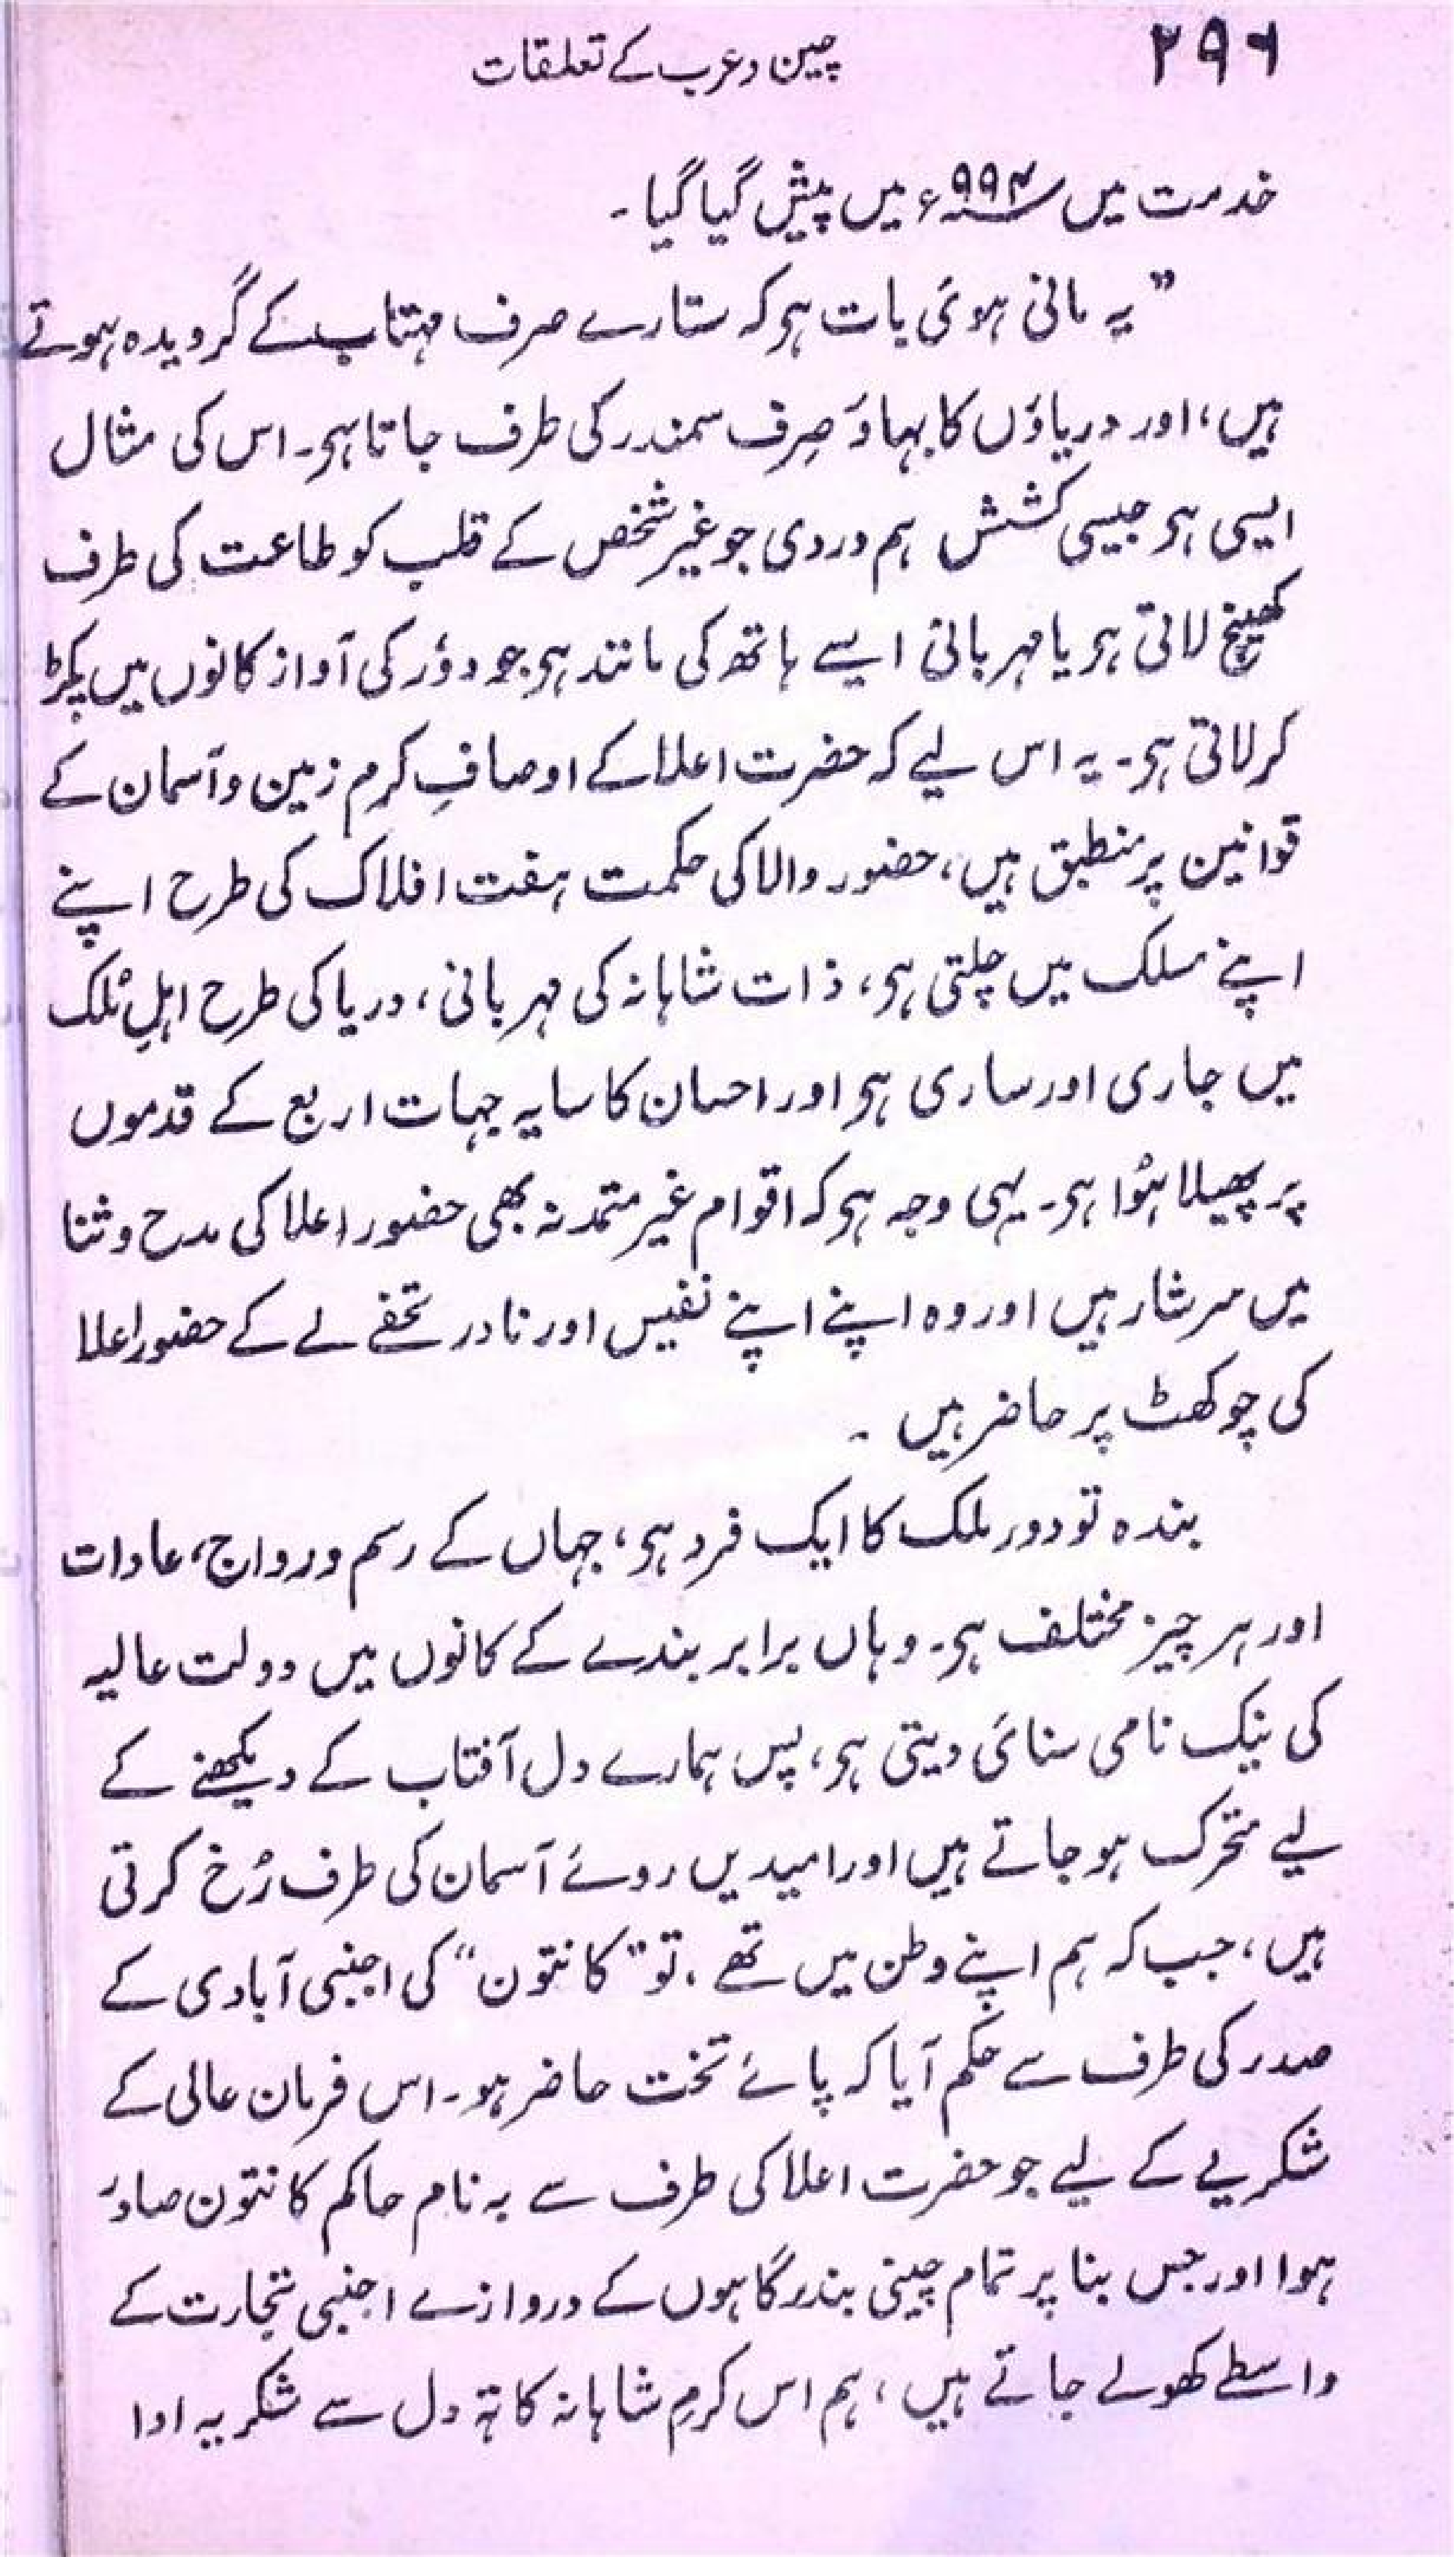 ۲۹۶
چین و عرب کے تعلقات
خدمت میں ۹۹۳ء میں پیش گیا گیا۔
”یہ مانی ہوئی بات ہو کہ ستارے صرف مہتاب کے گرویدہ ہوتے
ہیں، اور دریاؤں کا بہاؤ صِرف سمندر کی طرف جاتا ہو۔ اس کی مثال
ایسی ہو جیسی کشش ہم دردی جو غیر شخص کے قلب کو طاعت کی طرف
کھینچ لاتی ہو یا مہربانی ایسے ہاتھ کی مانند ہو جو دوٗر کی آواز کانوں میں پکڑ
کر لاتی ہو۔ یہ اس لیے کہ حضرت اعلا کے اوصافِ کرم زمین و آسمان کے
قوانین پر منطبق ہیں، حضور والا کی حکمت ہفت افلاک کی طرح اپنے
اپنے مسلک میں چلتی ہو، ذات شاہانہ کی مہربانی، دریا کی طرح اہلِ مُلک
میں جاری اور ساری ہو اور احسان کا سایہ جہات اربع کے قدموں
پر پھیلا ہُوا ہو۔ یہی وجہ ہو کہ اقوام غیر متمدنہ بھی حضور اعلا کی مدح و ثنا
میں سرشار ہیں اور وہ اپنے اپنے نفیس اور نادر تحفے لے کے حضور اعلا
کی چوکھٹ پر حاضر ہیں۔
بندہ تو دور ملک کا ایک فرد ہو، جہاں کے رسم و رواج، عادات
اور ہر چیز مختلف ہو۔ وہاں برابر بندے کے کانوں میں دولت عالیہ
کی نیک نامی سنائی دیتی ہو، پس ہمارے دل آفتاب کے دیکھنے کے
لیے متحرک ہو جاتے ہیں اور امیدیں روئے آسمان کی طرف رُخ کرتی
ہیں، جب کہ ہم اپنے وطن میں تھے، تو ”کانتون“ کی اجنبی آبادی کے
صدر کی طرف سے حکم آیا کہ پائے تخت حاضر ہو۔ اس فرمان عالی کے
شکریے کے لیے جو حضرت اعلا کی طرف سے بہ نام حاکم کانتون صادر
ہوا اور جس بنا پر تمام چینی بندرگاہوں کے دروازے اجنبی تجارت کے
واسطے کھولے جاتے ہیں، ہم اس کرمِ شاہانہ کا تہ دل سے شکریہ ادا